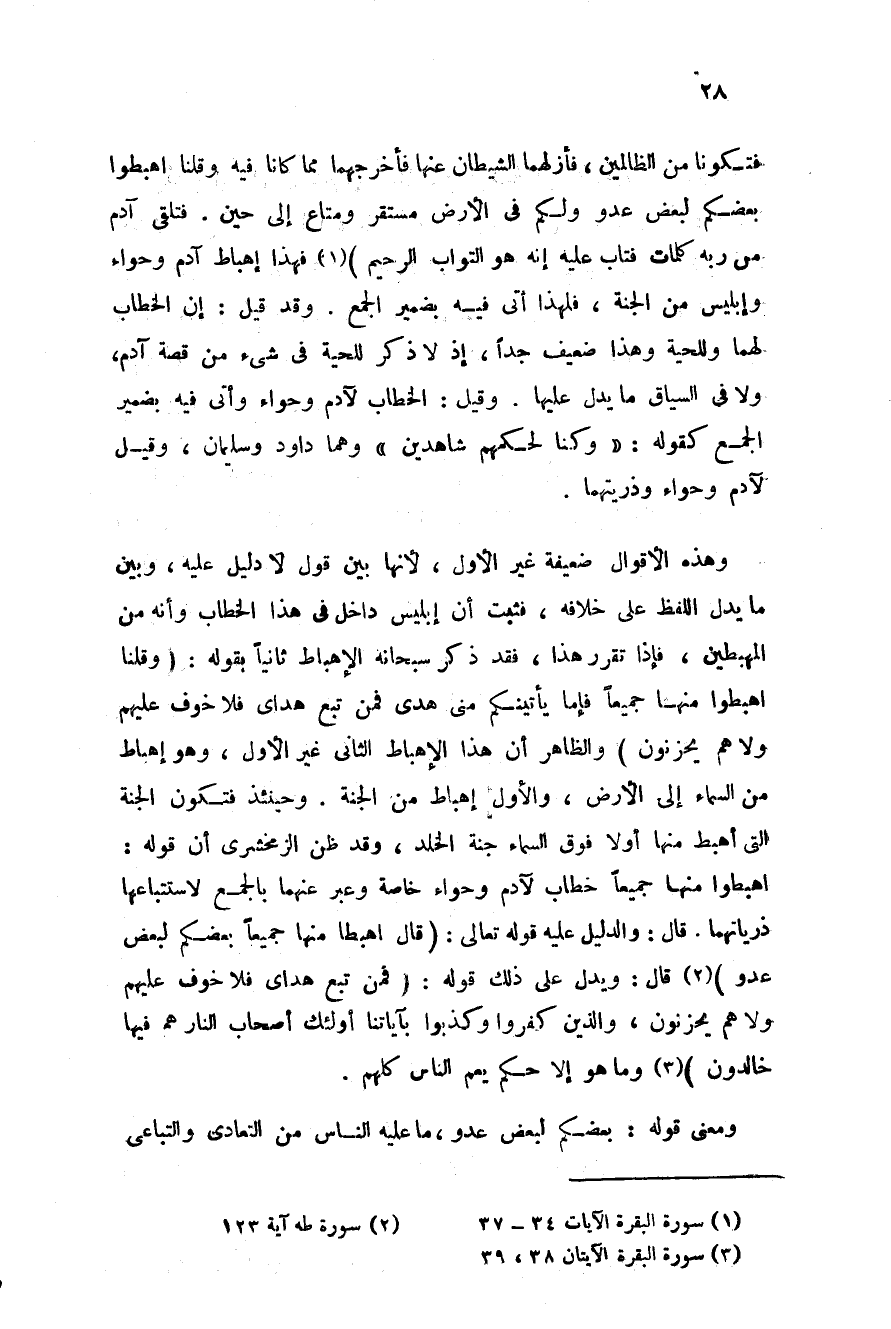 ٢٨
فتكونا من الظالمين ، فأزلهما الشيطان عنها فأخرجهما مما كانا فيه وقلنا اهبطوا
بعضكم لبعض عدو ولكم فى الأرض مستقر ومتاع إلى حين . فتلقى آدم
من ربه كلمات فتاب عليه إنه هو التواب الرحيم )(١) فهذا إهباط آدم وحواء
وإبليس من الجنة ، فلهذا أتى فيه بضمير الجمع . وقد قيل : إن الخطاب
لهما وللحية وهذا ضعيف جداً ، إذ لا ذكر للحية فى شىء من قصة آدم،
ولا فى السياق ما يدل عليها . وقيل : الخطاب لآدم وحواء وأتى فيه بضمير
الجمع كقوله : « وكنا لحكمهم شاهدين » وهما داود وسليمان ، وقيل
لآدم وحواء وذريتهما .
وهذه الأقوال ضعيفة غير الأول ، لأنها بين قول لا دليل عليه ، وبين
ما يدل اللفظ على خلافه ، فثبت أن إبليس داخل فى هذا الخطاب وأنه من
المهبطين ، فإذا تقرر هذا ، فقد ذكر سبحانه الإهباط ثانياً بقوله : ( وقلنا
اهبطوا منها جميعاً فإما يأتينكم منى هدى فمن تبع هداى فلا خوف عليهم
ولا هم يحزنون ) والظاهر أن هذا الإهباط الثانى غير الأول ، وهو إهباط
من السماء إلى الأرض ، والأول إهباط من الجنة . وحينئذ فتكون الجنة
التى أهبط منها أولا فوق السماء جنة الخلد ، وقد ظن الزمخشرى أن قوله :
اهبطوا منها جميعاً خطاب لآدم وحواء خاصة وعبر عنهما بالجمع لاستتباعها
ذرياتهما . قال : والدليل عليه قوله تعالى : ( قال اهبطا منها جميعاً بعضكم لبعض
عدو )(٢) قال : ويدل على ذلك قوله : ( فمن تبع هداى فلا خوف عليهم
ولا هم يحزنون ، والذين كفروا وكذبوا بآياتنا أولئك أصحاب النار هم فيها
خالدون )(٣) وما هو إلا حكم يعم الناس كلهم .
ومعنى قوله : بعضكم لبعض عدو ، ما عليه الناس من التعادى والتباعى
(١) سورة البقرة الآيات ٣٤ ــ ٣٧ (٢) سورة طه آية ١٢٣
(٣) سورة البقرة الآيتان ٣٨ ، ٣٩